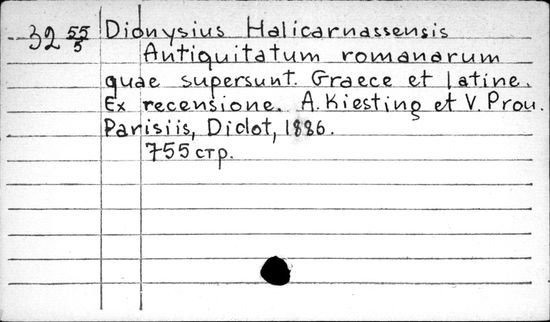 32 55/5 Dionysius Halicarnassensis
Antiquitatum romanarum
quae supersunt. Graece et latine.
Ex recensione. A. Kiesting et V. Prou.
Parisiis, Didot, 1886.
755 стр.